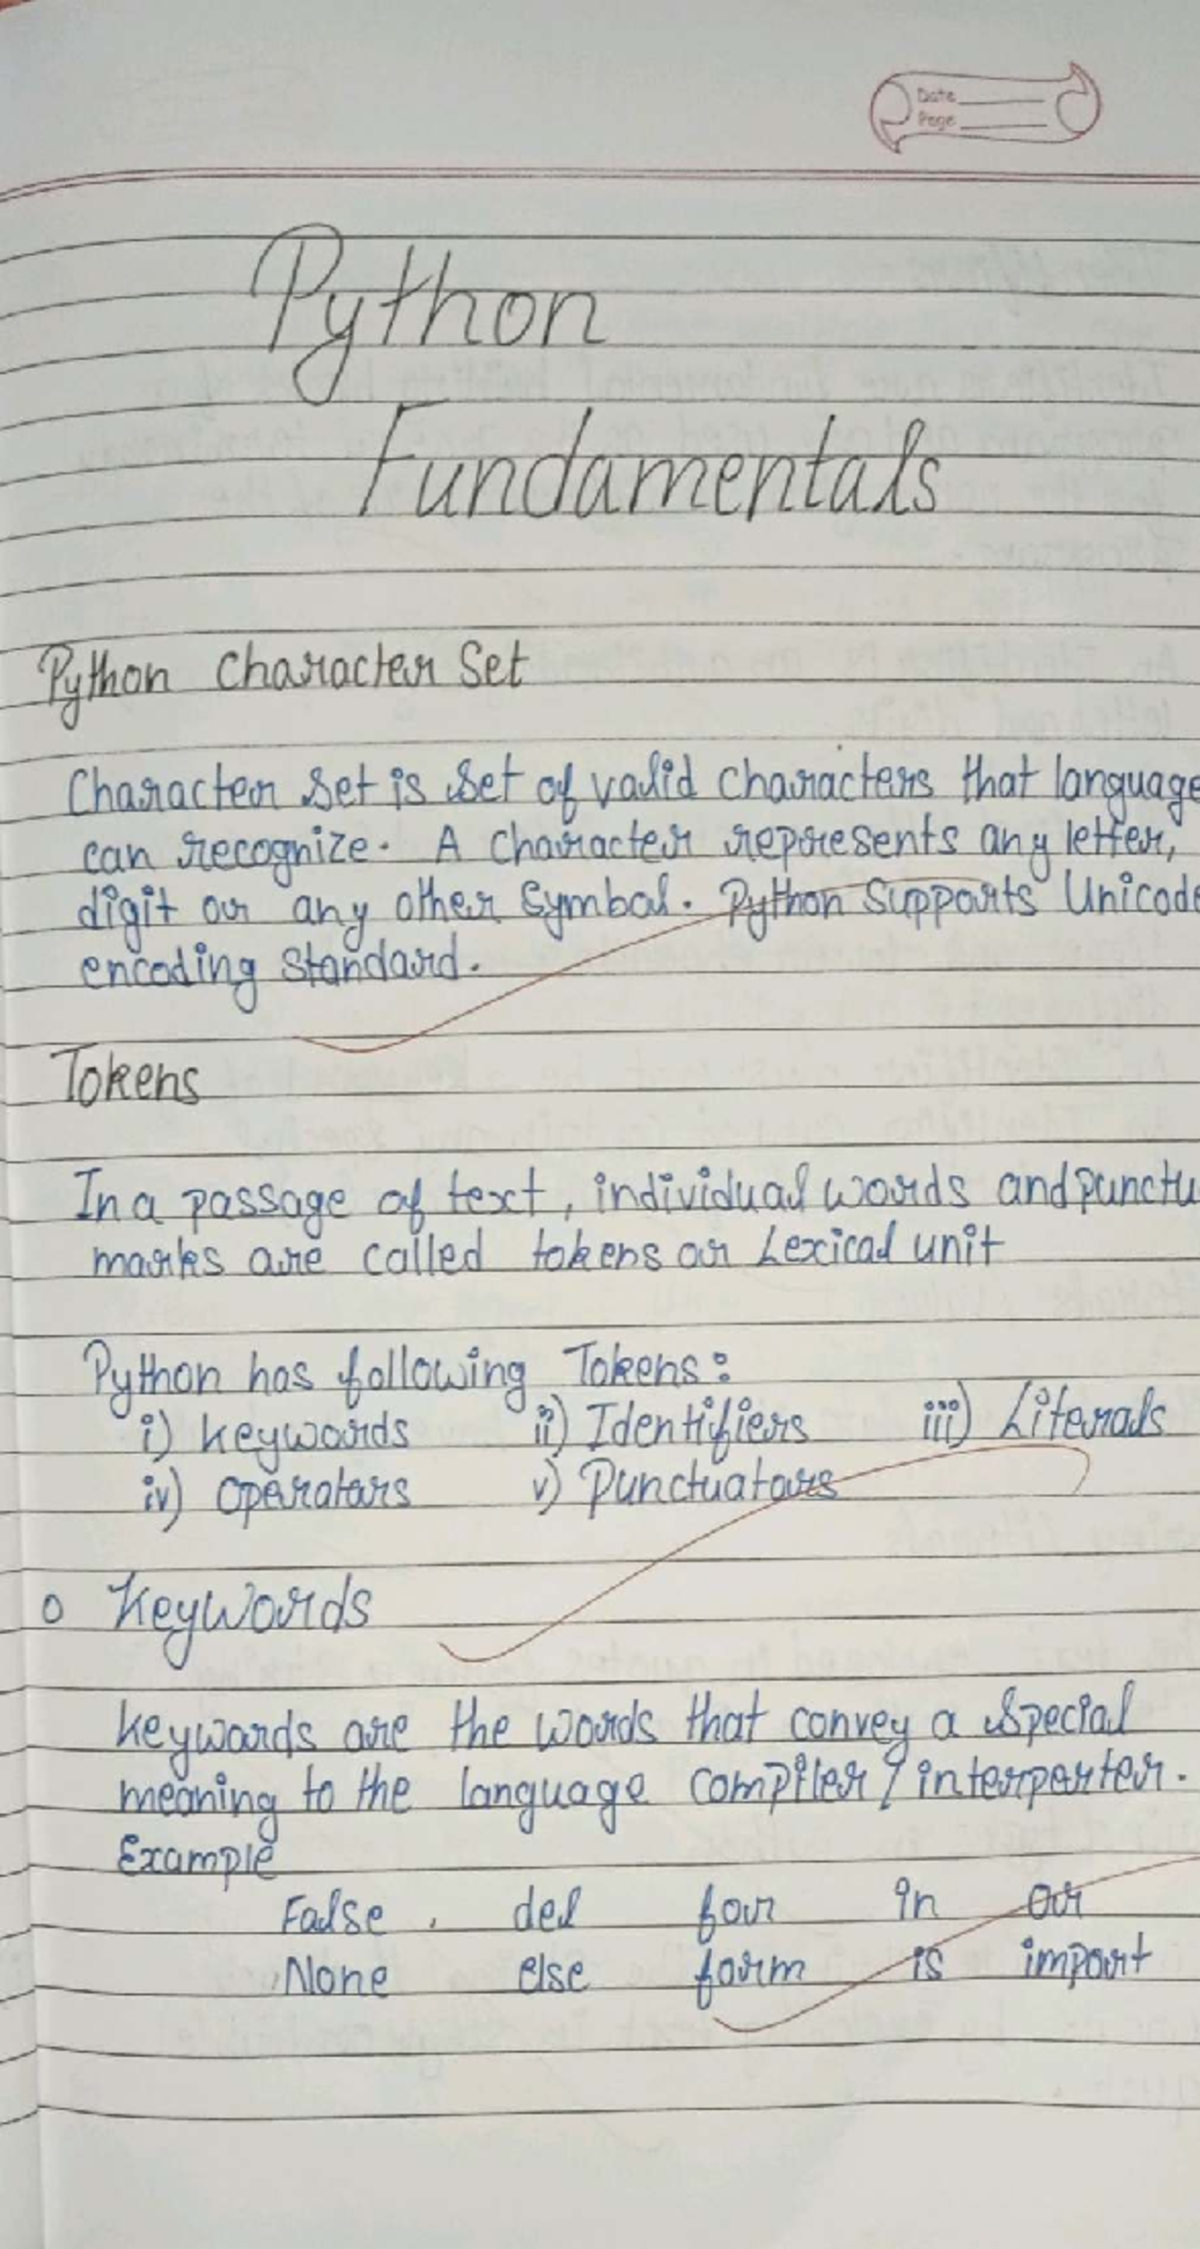 Date
Page
Python
Fundamentals
Python Character Set
Character Set is Set of valid characters that language
can recognize. A Character represents any letter,
digit or any other Symbol. Python Supports Unicode
encoding Standard.
Tokens
In a passage of text, individual words and punctu
marks are called tokens or Lexical unit
Python has following Tokens:
i) keywords ii) Identifiers iii) Literals
iv) Operators v) Punctuators
o Keywords
keywords are the words that convey a Special
meaning to the language compiler / interperter.
Example
False del for in or
None else form is import